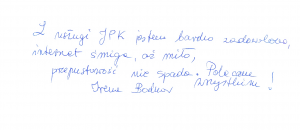 Z usługi JPK jestem bardzo zadowolona,
internet śmiga, aż miło,
przepustowość nie spada. Polecam
wszystkim!
Irena Bodnar